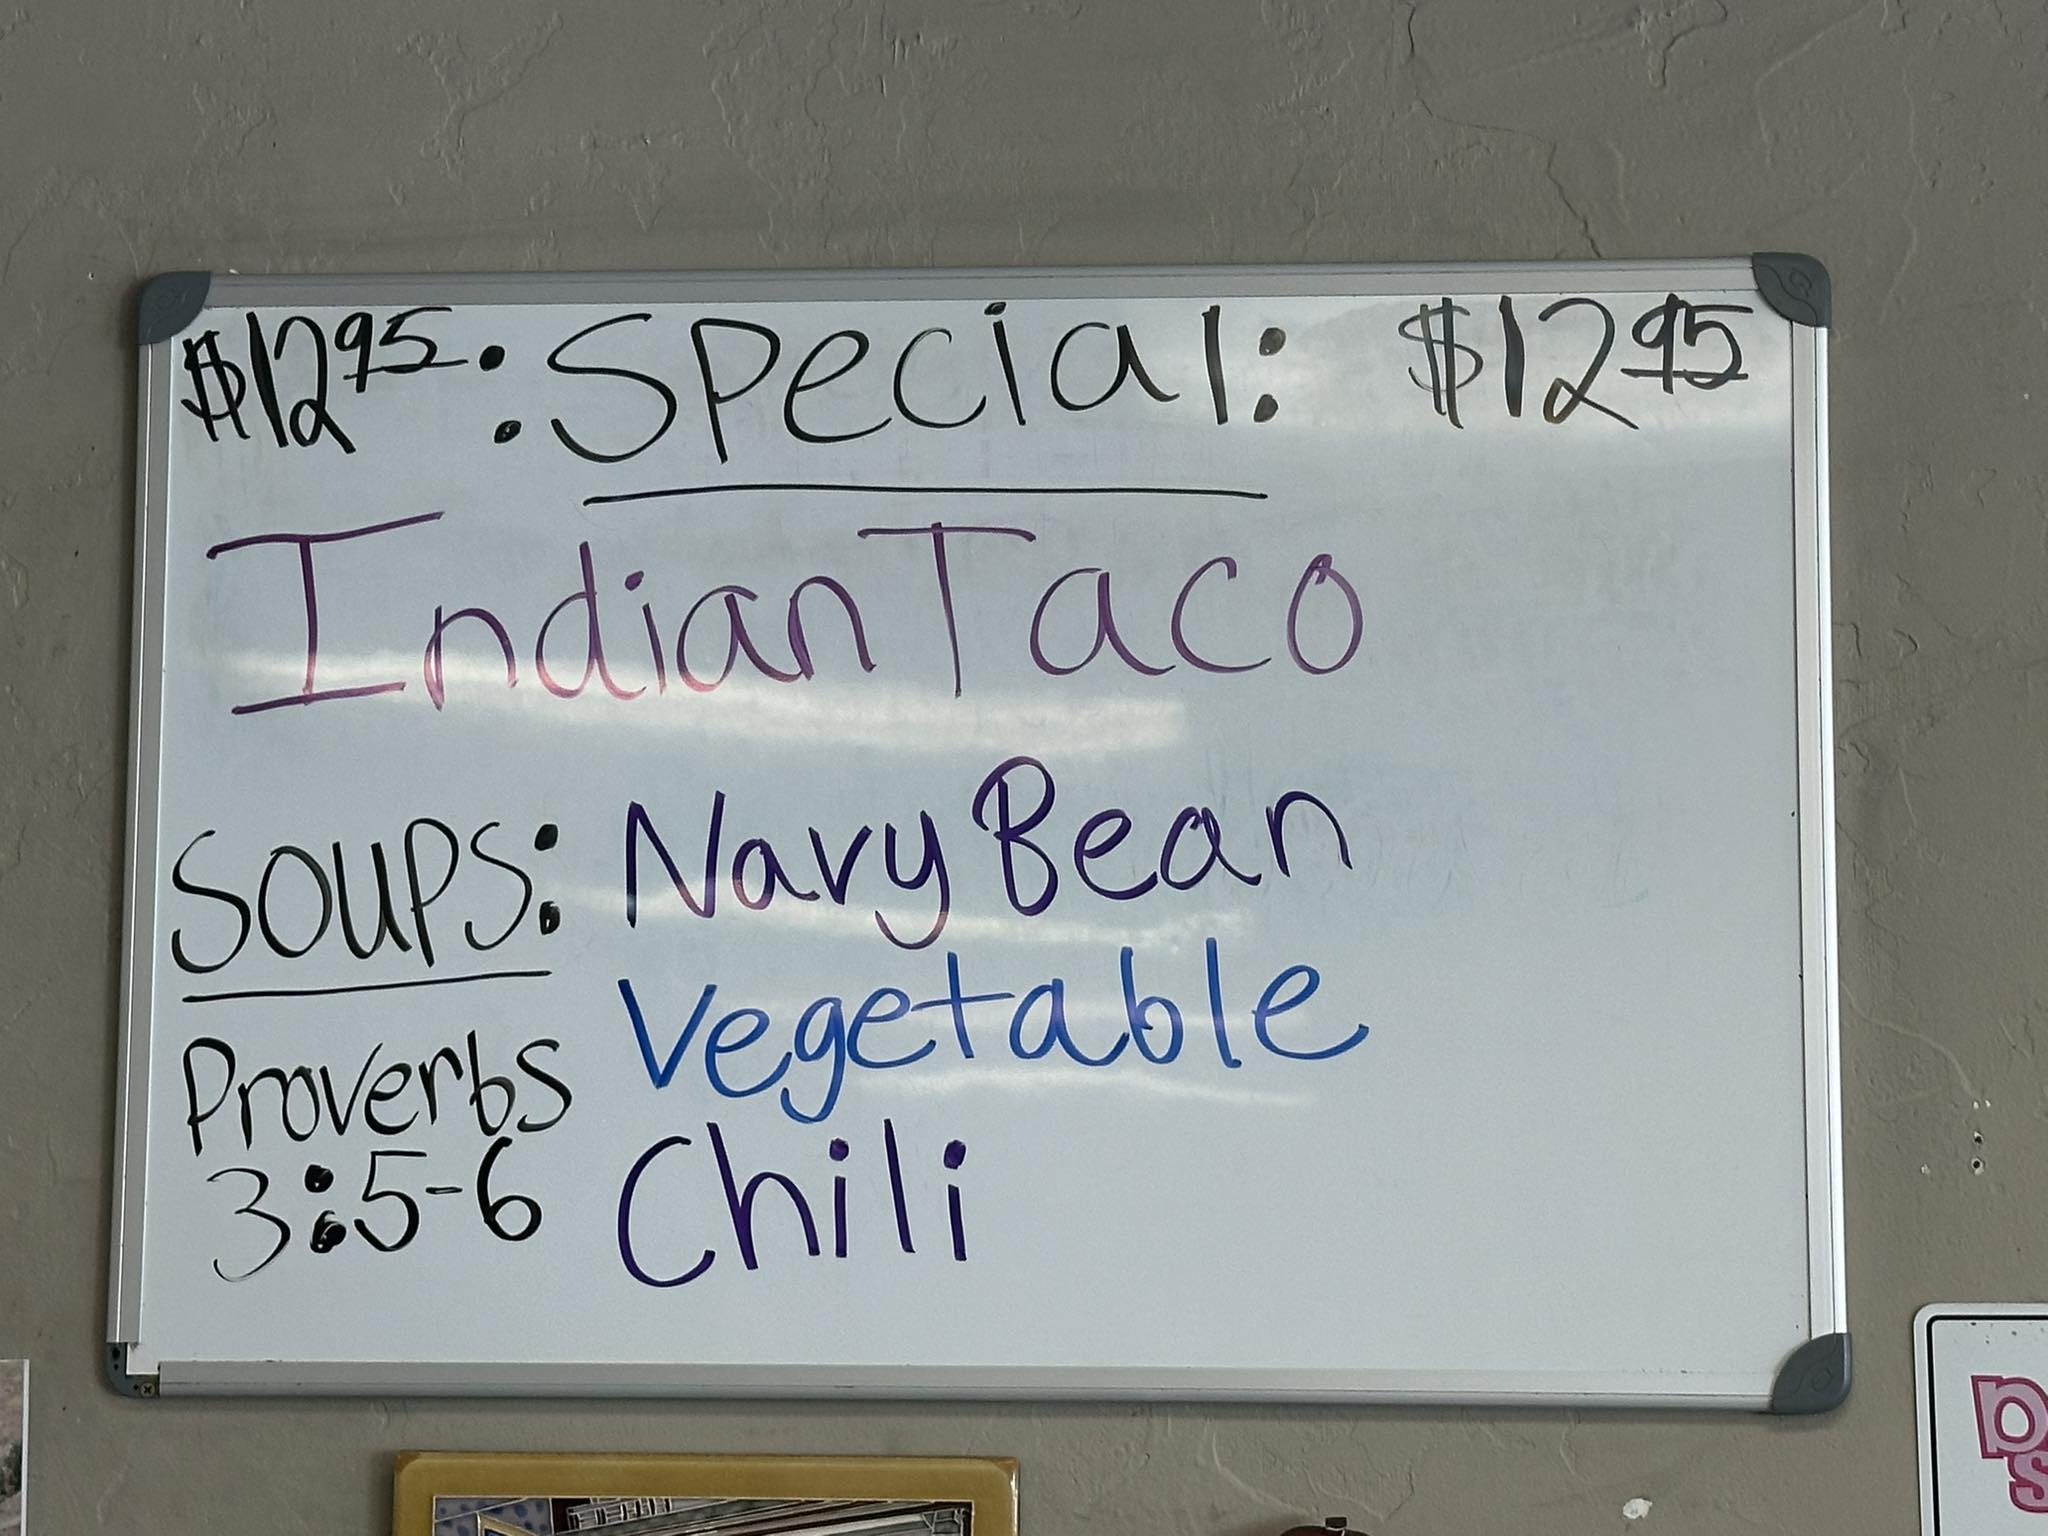 $12.95 : Special: $12.95
Indian Taco
Soups: Navy Bean
Vegetable
Proverbs
3:5-6
Chili